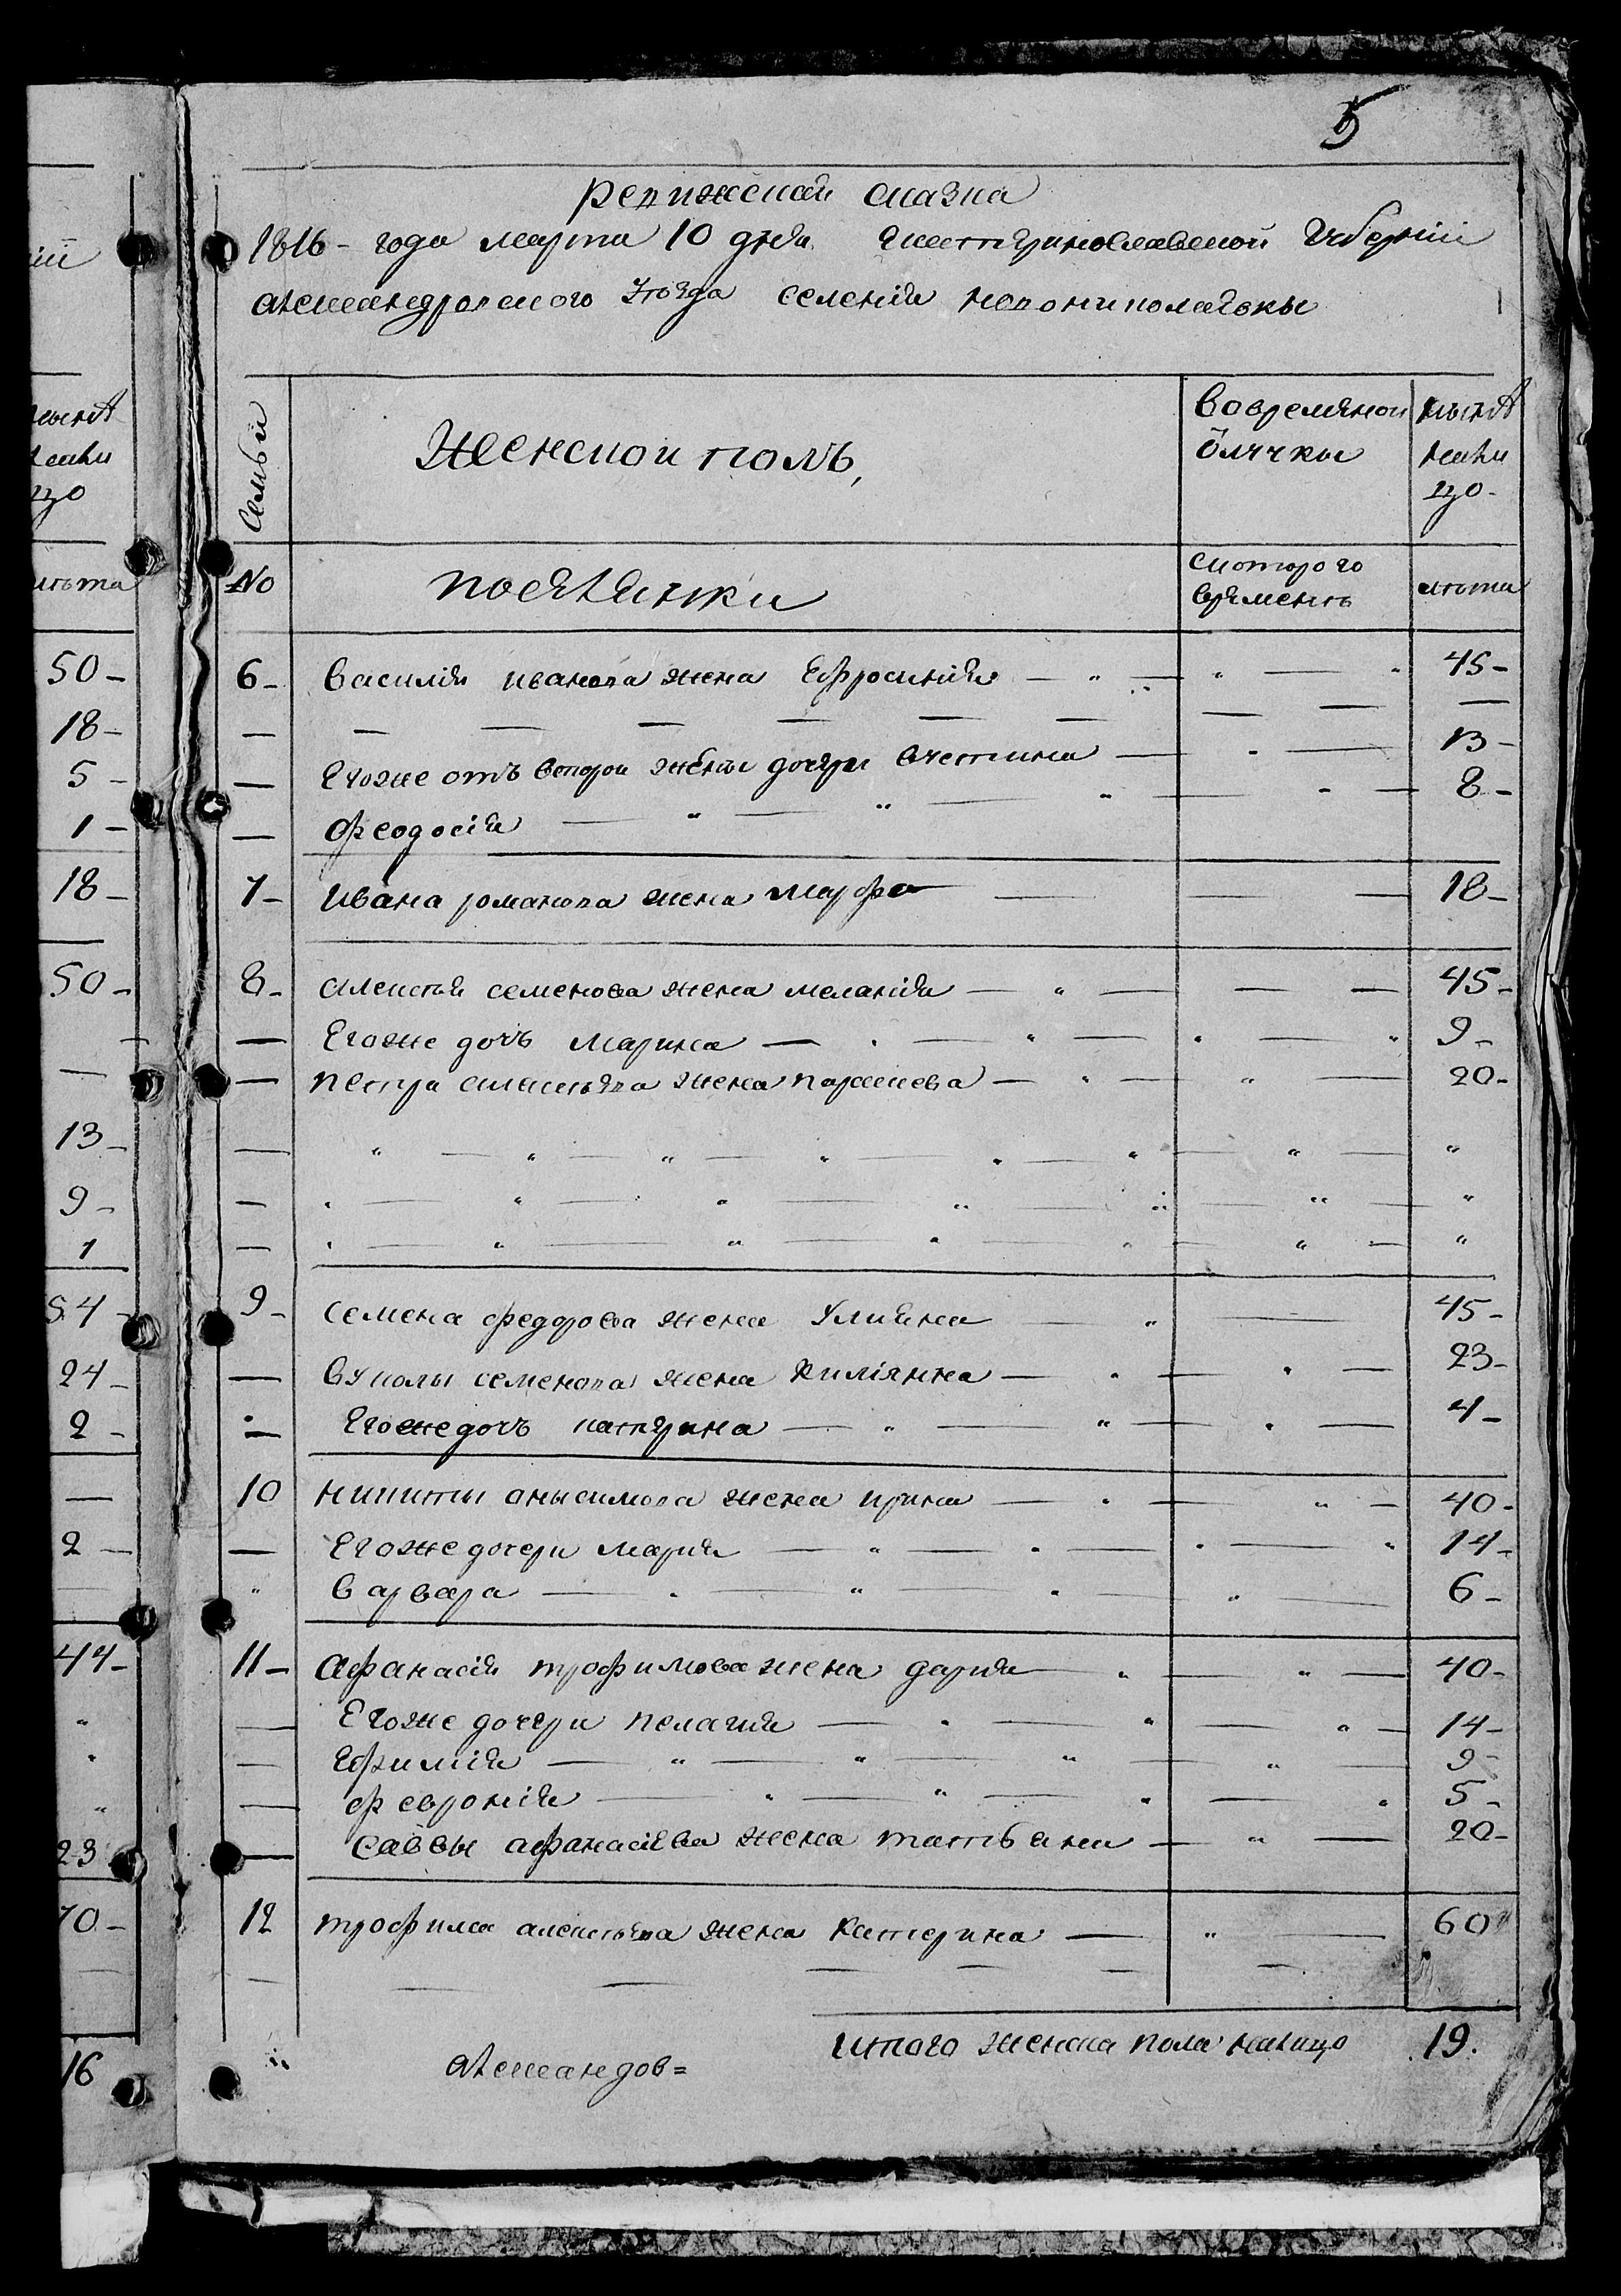 5
ревижская сказка
1816 - года марта 10 дня екатериносламской губернии
александровского уезда селения новониколаевки
Семьи
Женской полъ,
Вовременой
отлучки
ныне
нали
цо
№
поселянки
с которого
времени
лета
6 - Василия иванова жена Ефросиния - " - " - 45 -
Егоже отъ второй жены дочери Устина - 13 -
Феодосия - " - " - 8 -
7 - Ивана романова жена марфа - 18 -
8 - алексея семенова жена мелания - " - 45 -
Егоже дочь Марина - 9 -
петра алексеева жена параскева - " - 20 -
9 - семена федорова жена Улияна - " - 45 -
вуколы семенова жена килиянна - 23 -
Егоже дочь катерина - " - 4 -
10 никиты анысимова жена ирина - 40 -
Егоже дочери мария - " - 14 -
варвара - " - 6 -
11 - афанасия трофимова жена дария - " - 40 -
Егоже дочери пелагия - " - 14 -
Ефимия - " - " - 9 -
феврония - " - " - 5 -
саввы афанасиева жена татьяна - " - 20 -
12 трофима алексеева жена катерина - " - 60
итого женска пола налицо 19.
александров=
ии
ныне
нали
цо
лета
50 -
18 -
5 -
1 -
18 -
50 -
13 -
9 -
1
54 -
24 -
2 -
2 -
44 -
23
70 -
16